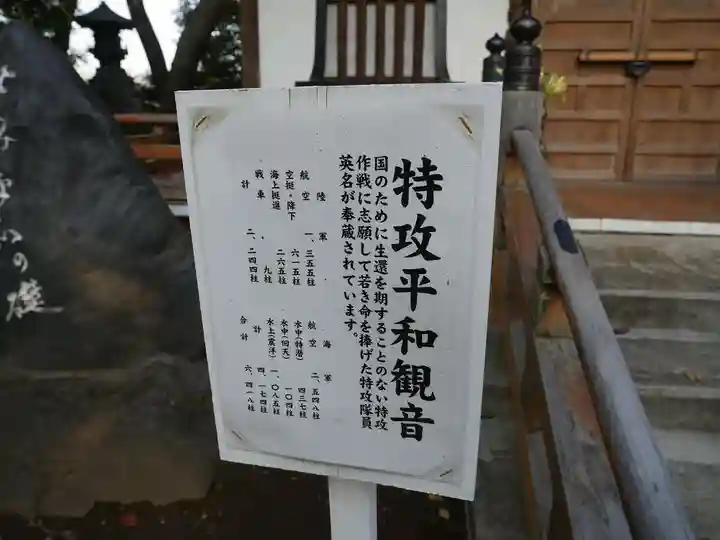 特攻平和観音
国のために生還を期することのない特攻
作戦に志願して若き命を捧げた特攻隊員
英名が奉蔵されています。
陸軍
航空 一、三五五柱
空挺・降下 六一五柱
海上挺進 二六五柱
戦車 九柱
計 二、二四四柱
海軍
航空 二、五四八柱
水中(特潜) 四三七柱
水中(回天) 一〇四柱
水上(震洋) 一、〇八五柱
計 四、一七四柱
合計 六、四一八柱